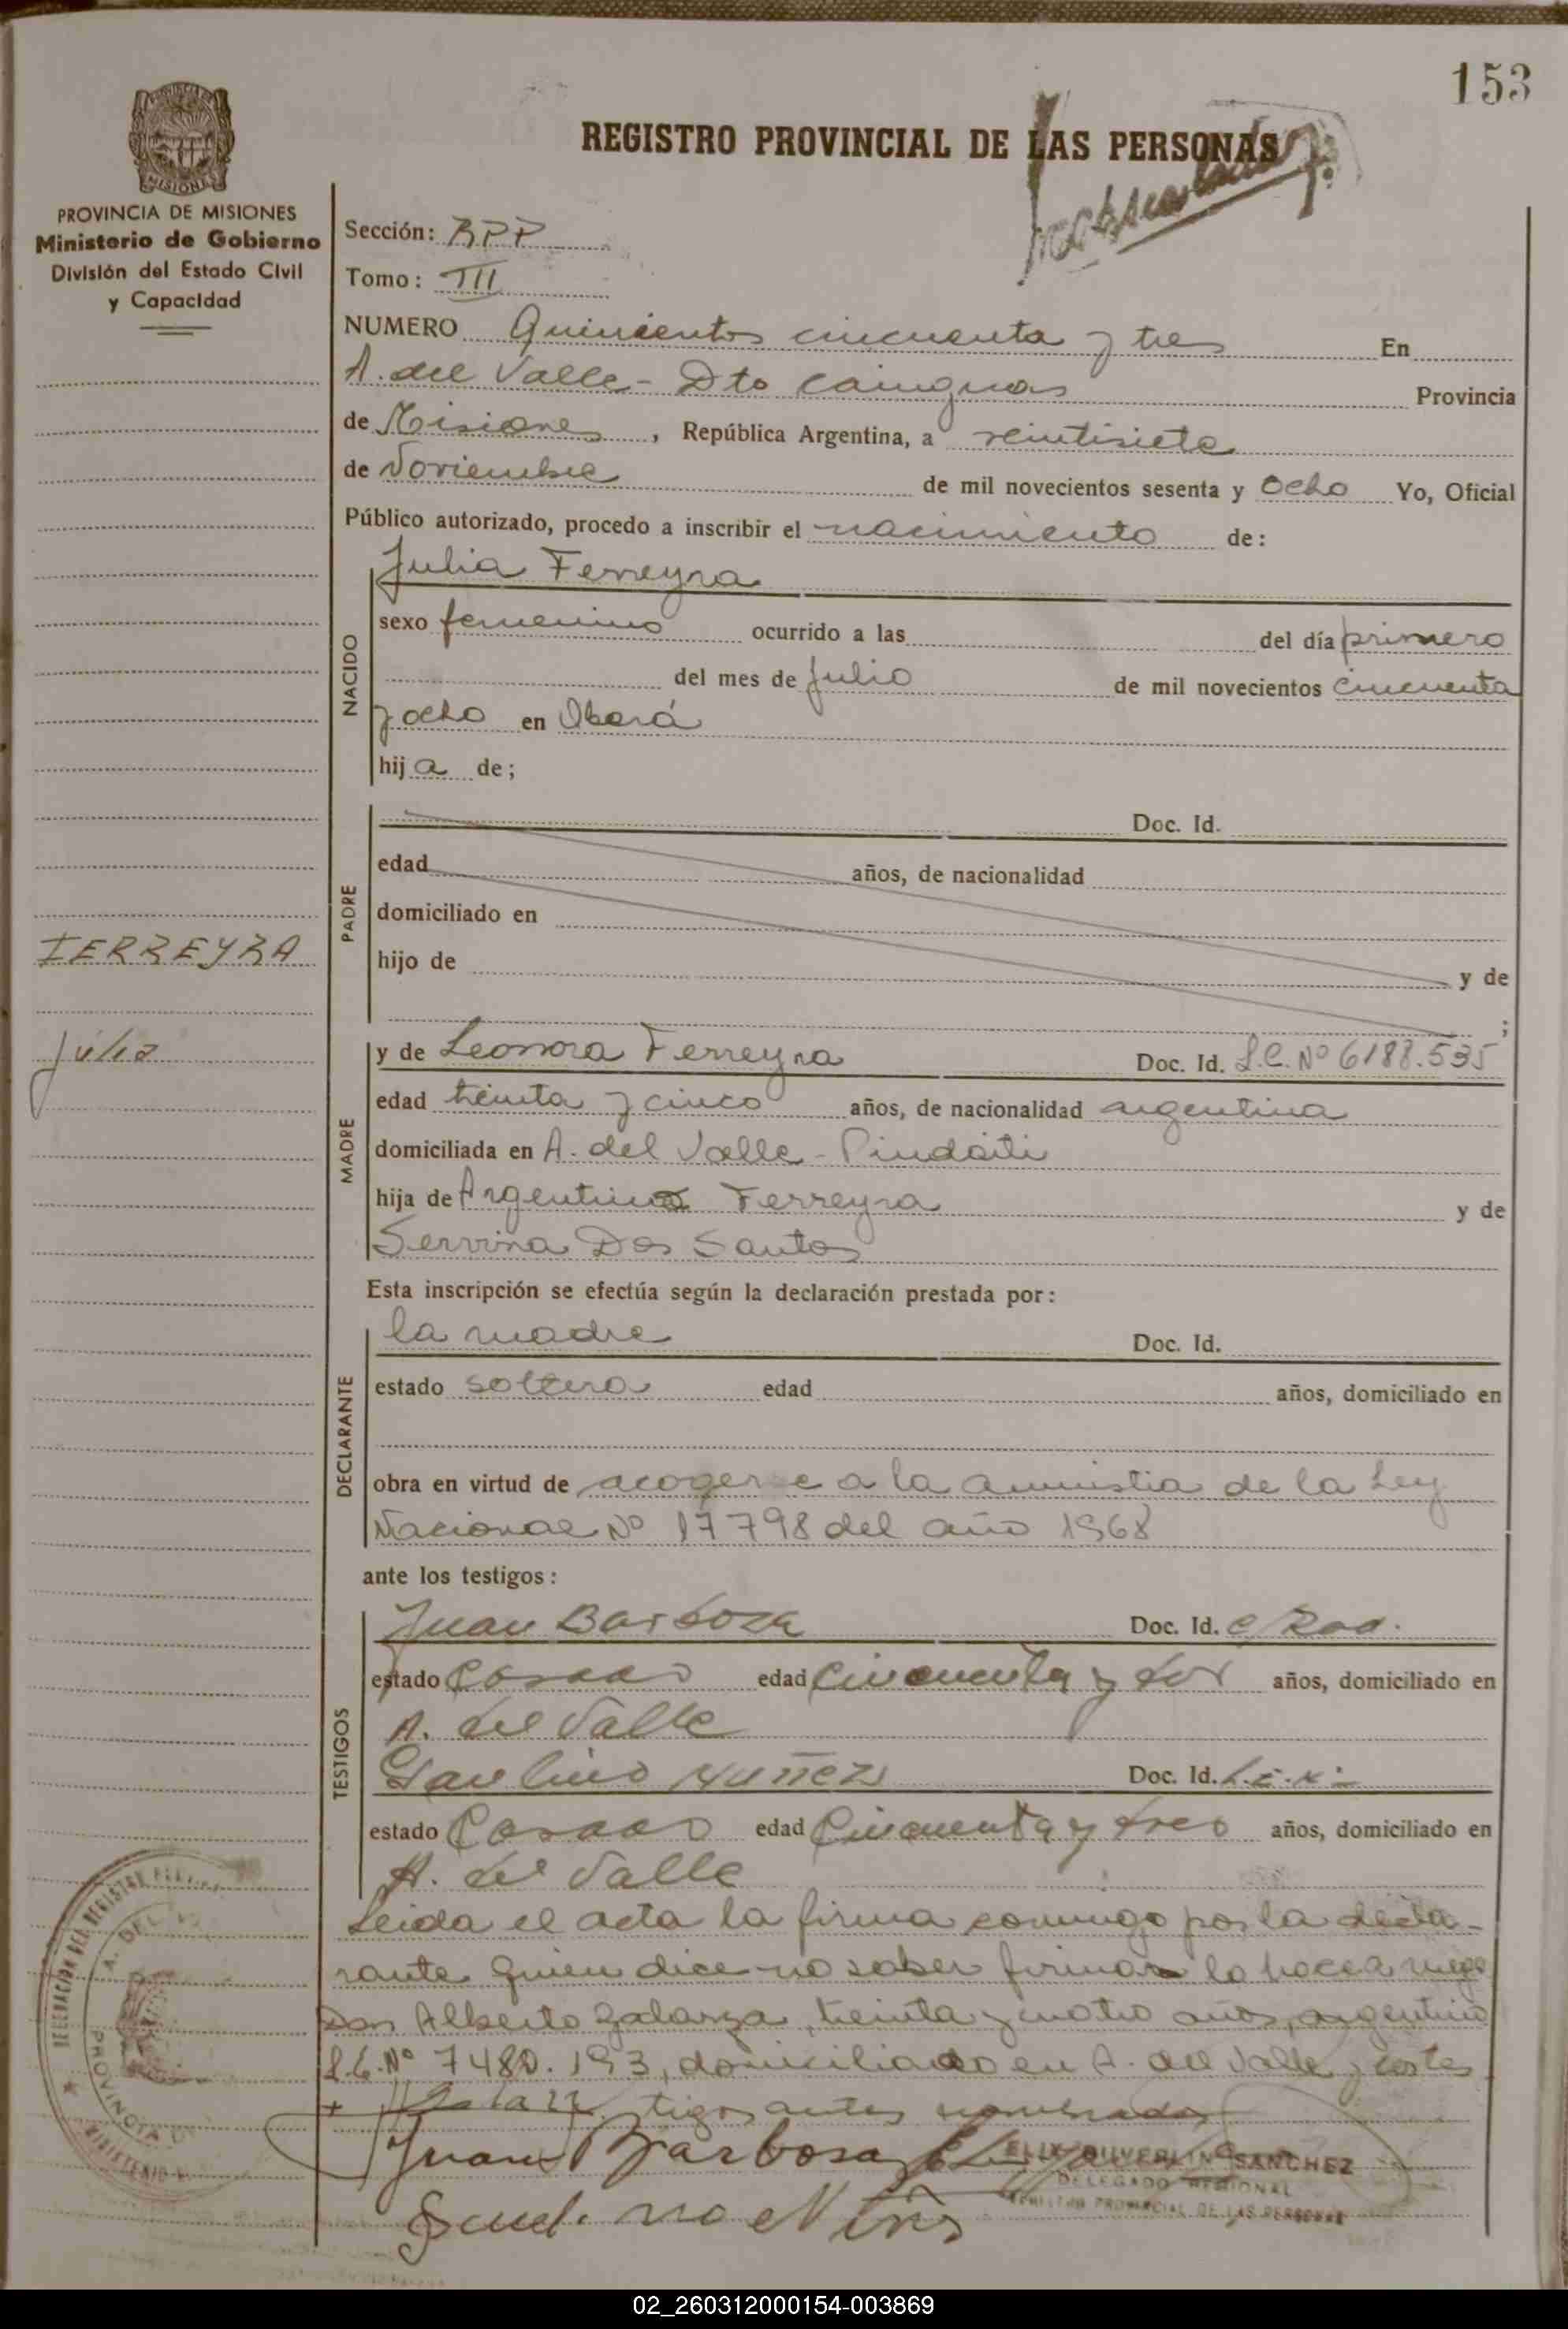 153
REGISTRO PROVINCIAL DE LAS PERSONAS
PROVINCIA DE MISIONES
Ministerio de Gobierno
División del Estado Civil
y Capacidad
Sección: RPP
Tomo: III
NUMERO Quinientos cincuenta y tres En
A. del Valle - Dto Cainguas Provincia
de Misiones, República Argentina, a veintisiete
de Noviembre de mil novecientos sesenta y Ocho Yo, Oficial
Público autorizado, procedo a inscribir el nacimiento de:
NACIDO
Julia Ferreyra
sexo femenino ocurrido a las del día primero
del mes de Julio de mil novecientos cincuenta
y ocho en Oberá
hija de;
PADRE
Doc. Id.
edad años, de nacionalidad
domiciliado en
hijo de y de
;
FERREYRA
Julia
MADRE
y de Leonora Ferreyra Doc. Id. L.C. Nº 6188.535
edad treinta y cinco años, de nacionalidad argentina
domiciliada en A. del Valle - Pindaiti
hija de Argentino Ferreyra y de
Servina Dos Santos
Esta inscripción se efectúa según la declaración prestada por:
DECLARANTE
la madre Doc. Id.
estado soltera edad años, domiciliado en
obra en virtud de acogerse a la amnistia de la Ley
Nacional Nº 17798 del año 1968
ante los testigos:
TESTIGOS
Juan Barboza Doc. Id.
estado Casado edad Cincuenta y dos años, domiciliado en
A. del Valle
Nuñez Doc. Id.
estado Casado edad Cincuenta y tres años, domiciliado en
A. del Valle
Leida el acta la firma conmigo por la decla-
rante quien dice no saber firmar lo hace a ruego
Don Alberto Galarza, treinta y cuatro años, argentino
Nº 7480.193, domiciliado en A. del Valle y los tes
tigos antes nombrados
Juan Barbosa
SANCHEZ
DELEGADO REGIONAL
REGISTRO PROVINCIAL DE LAS PERSONAS
DELEGACION DEL REGISTRO
A. DEL
PROVINCIA
MINISTERIO
02_260312000154-003869